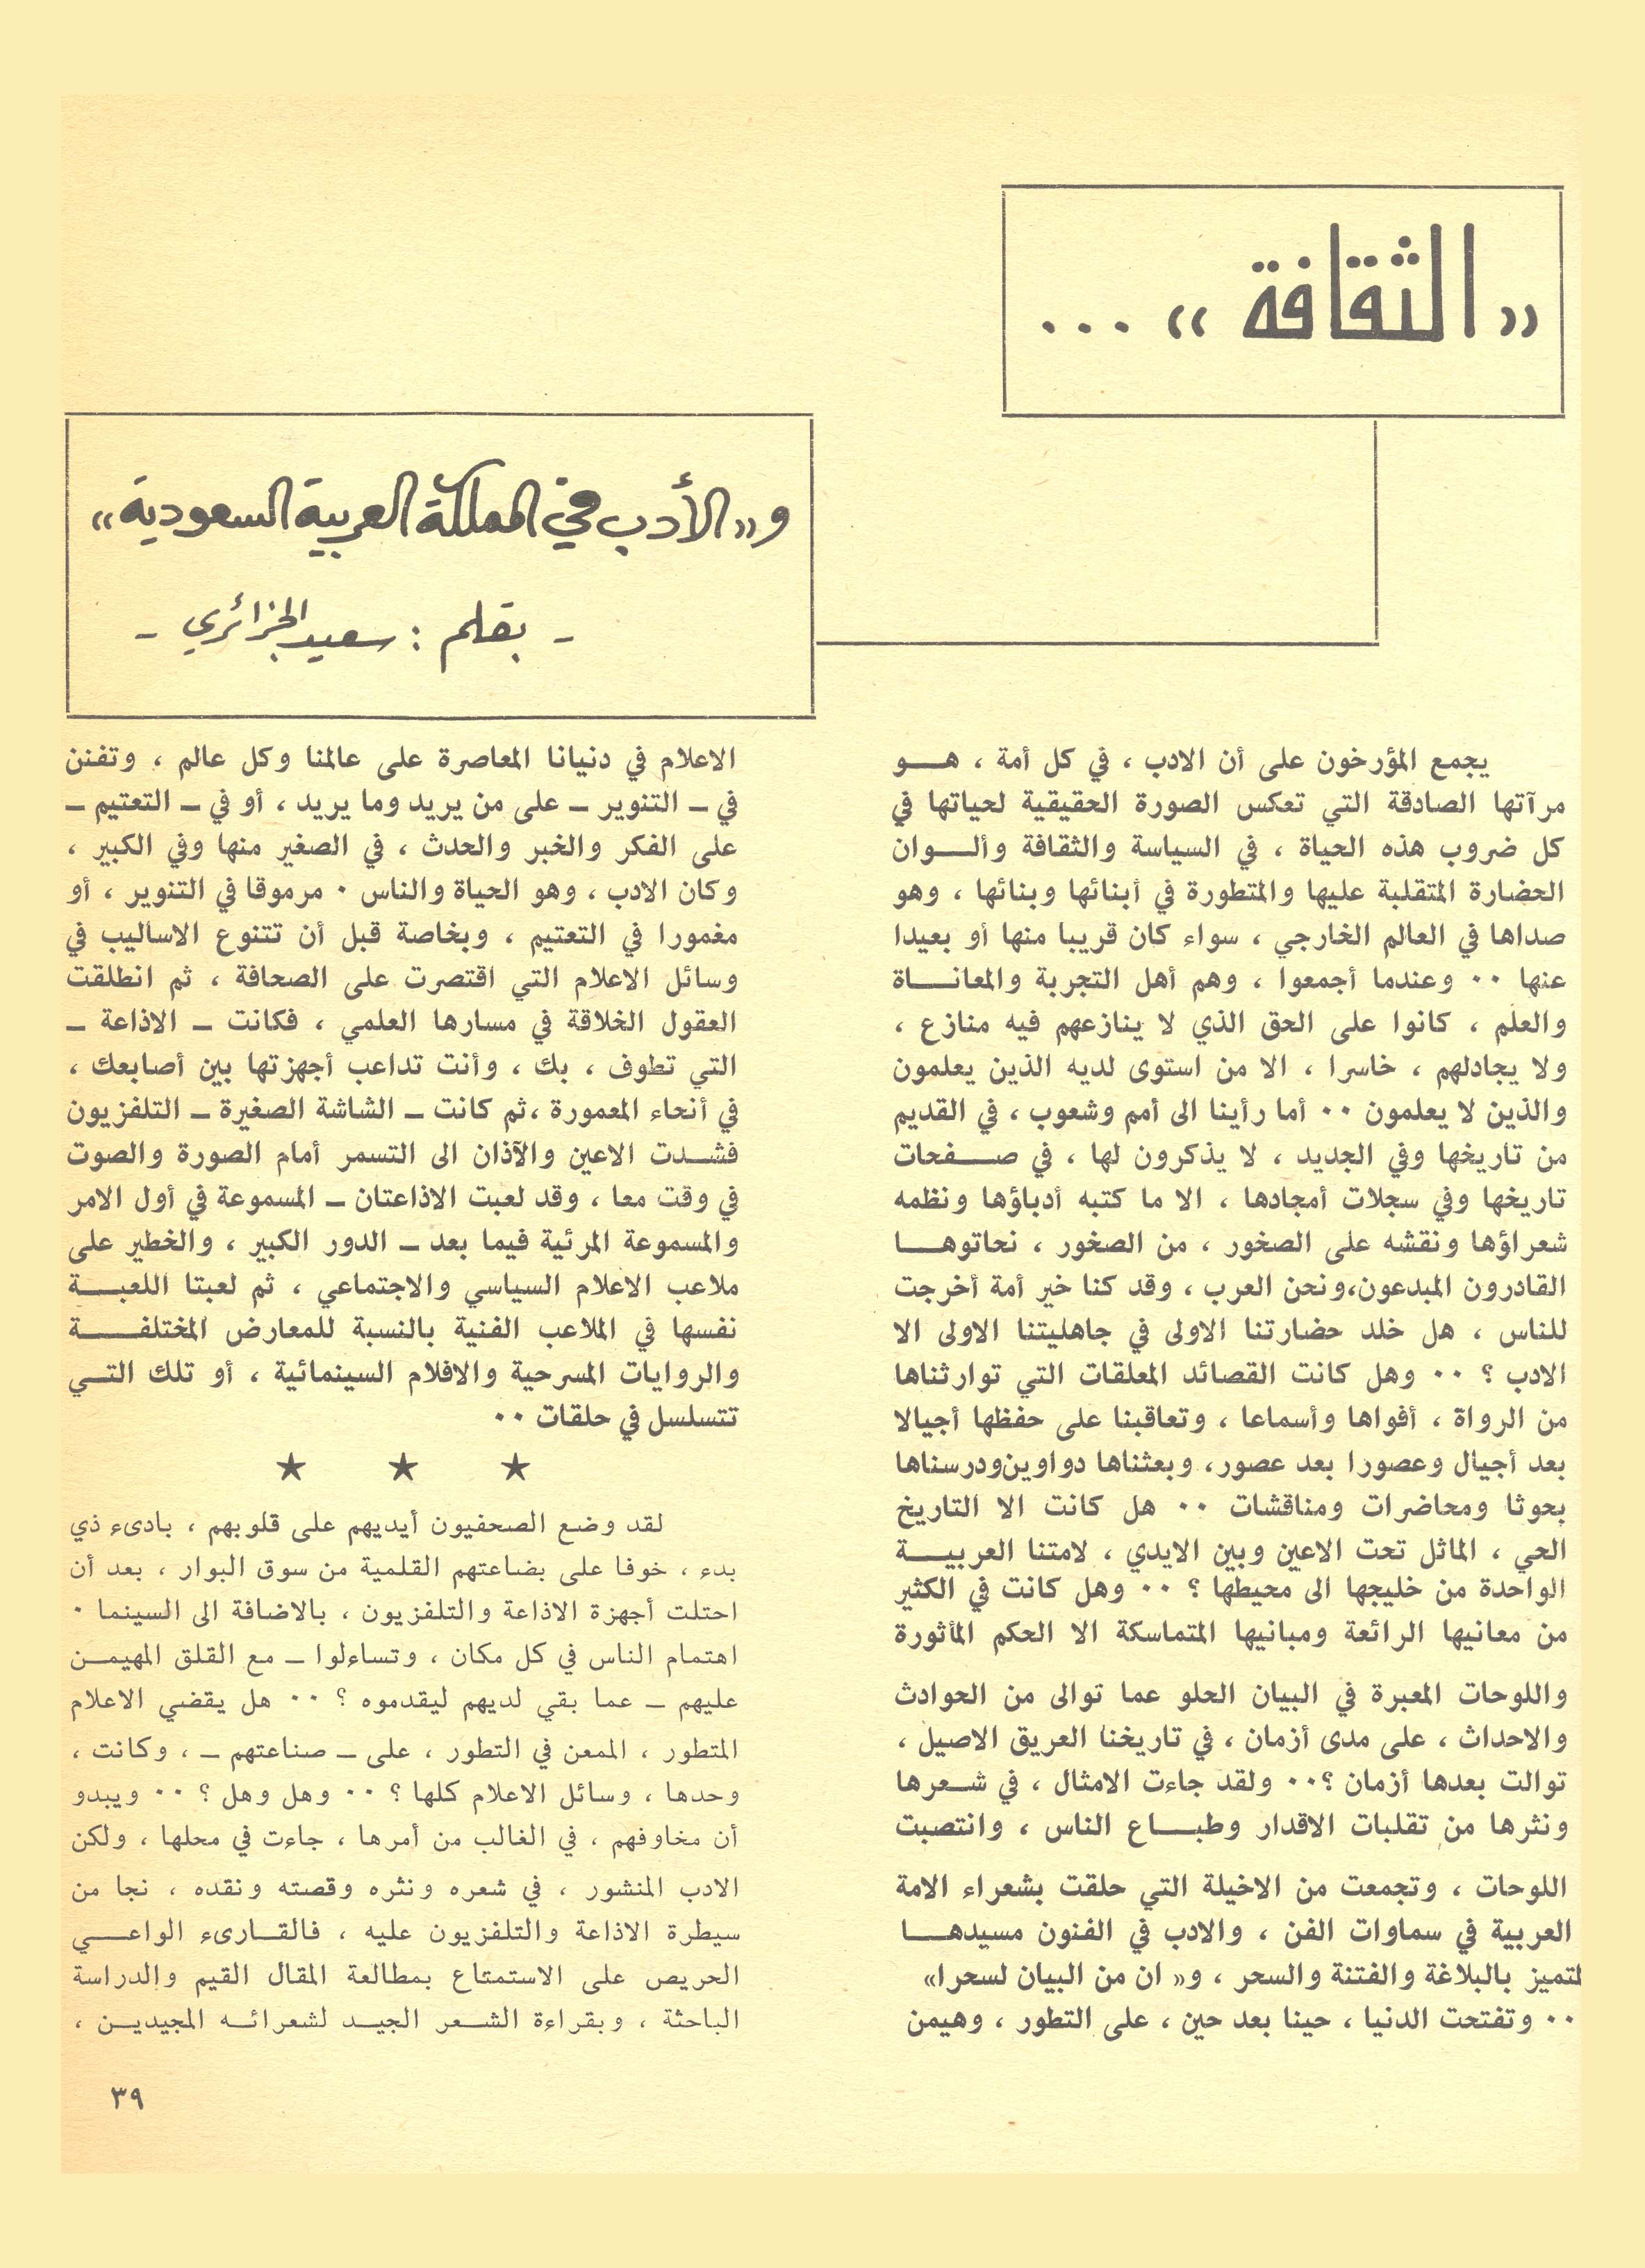 « الثقافة » ...
و«الأدب في المملكة العربية السعودية»
- بقلم : سعيد الجزائري -
يجمع المؤرخون على أن الادب ، في كل أمة ، هـــو
مرآتها الصادقة التي تعكس الصورة الحقيقية لحياتها في
كل ضروب هذه الحياة ، في السياسة والثقافة وألـــوان
الحضارة المتقلبة عليها والمتطورة في أبنائها وبنائها ، وهو
صداها في العالم الخارجي ، سواء كان قريبا منها أو بعيدا
عنها ٠٠ وعندما أجمعوا ، وهم أهل التجربة والمعانـــاة
والعلم ، كانوا على الحق الذي لا ينازعهم فيه منازع ،
ولا يجادلهم ، خاسرا ، الا من استوى لديه الذين يعلمون
والذين لا يعلمون ٠٠ أما رأينا الى أمم وشعوب ، في القديم
من تاريخها وفي الجديد ، لا يذكرون لها ، في صـــفحات
تاريخها وفي سجلات أمجادها ، الا ما كتبه أدباؤها ونظمه
شعراؤها ونقشه على الصخور ، من الصخور ، نحاتوهـــا
القادرون المبدعون،ونحن العرب ، وقد كنا خير أمة أخرجت
للناس ، هل خلد حضارتنا الاولى في جاهليتنا الاولى الا
الادب ؟ ٠٠ وهل كانت القصائد المعلقات التي توارثناها
من الرواة ، أفواها وأسماعا ، وتعاقبنا على حفظها أجيالا
بعد أجيال وعصورا بعد عصور، وبعثناها دواوين ودرسناها
بحوثا ومحاضرات ومناقشات ٠٠ هل كانت الا التاريخ
الحي ، الماثل تحت الاعين وبين الايدي ، لامتنا العربيـــة
الواحدة من خليجها الى محيطها ؟ ٠٠ وهل كانت في الكثير
من معانيها الرائعة ومبانيها المتماسكة الا الحكم المأثورة
واللوحات المعبرة في البيان الحلو عما توالى من الحوادث
والاحداث ، على مدى أزمان ، في تاريخنا العريق الاصيل ،
توالت بعدها أزمان ؟٠٠ ولقد جاءت الامثال ، في شـعرها
ونثرها من تقلبات الاقدار وطبـــاع الناس ، وانتصبت
اللوحات ، وتجمعت من الاخيلة التي حلقت بشعراء الامة
العربية في سماوات الفن ، والادب في الفنون مسيدهـــا
لتميز بالبلاغة والفتنة والسحر ، و« ان من البيان لسحرا»
٠٠ وتفتحت الدنيا ، حينا بعد حين ، على التطور ، وهيمن
الاعلام في دنيانا المعاصرة على عالمنا وكل عالم ، وتفنن
في ـ التنوير ـ على من يريد وما يريد ، أو في ـ التعتيم ـ
على الفكر والخبر والحدث ، في الصغير منها وفي الكبير ،
وكان الادب ، وهو الحياة والناس ٠ مرموقا في التنوير ، أو
مغمورا في التعتيم ، وبخاصة قبل أن تتنوع الاساليب في
وسائل الاعلام التي اقتصرت على الصحافة ، ثم انطلقت
العقول الخلاقة في مسارها العلمي ، فكانت ـ الاذاعة ـ
التي تطوف ، بك ، وأنت تداعب أجهزتها بين أصابعك ،
في أنحاء المعمورة ،ثم كانت ـ الشاشة الصغيرة ـ التلفزيون
فشـدت الاعين والآذان الى التسمر أمام الصورة والصوت
في وقت معا ، وقد لعبت الاذاعتان ـ المسموعة في أول الامر
والمسموعة المرئية فيما بعد ـ الدور الكبير ، والخطير على
ملاعب الاعلام السياسي والاجتماعي ، ثم لعبتا اللعبـــة
نفسها في الملاعب الفنية بالنسبة للمعارض المختلفـــة
والروايات المسرحية والافلام السينمائية ، أو تلك التـي
تتسلسل في حلقات ٠٠
★ ★ ★
لقد وضع الصحفيون أيديهم على قلوبهم ، بادىء ذي
بدء ، خوفا على بضاعتهم القلمية من سوق البوار ، بعد أن
احتلت أجهزة الاذاعة والتلفزيون ، بالاضافة الى السينما ٠
اهتمام الناس في كل مكان ، وتساءلوا ـ مع القلق المهيمـن
عليهم ـ عما بقي لديهم ليقدموه ؟ ٠٠ هل يقضي الاعلام
المتطور ، الممعن في التطور ، على ـ صناعتهم ـ ، وكانت ،
وحدها ، وسائل الاعلام كلها ؟ ٠٠ وهل وهل ؟ ٠٠ ويبدو
أن مخاوفهم ، في الغالب من أمرها ، جاءت في محلها ، ولكن
الادب المنشور ، في شعره ونثره وقصته ونقده ، نجا من
سيطرة الاذاعة والتلفزيون عليه ، فالقـارىء الواعـــي
الحريص على الاستمتاع بمطالعة المقال القيم والدراسة
الباحثة ، وبقراءة الشـعر الجيـد لشعرائـه المجيديـن ،
٣٩